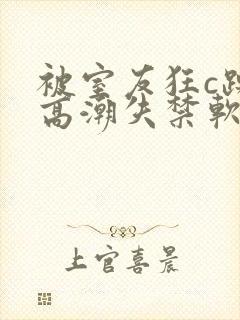 被室友狂c
高潮失禁軟
上官喜晨